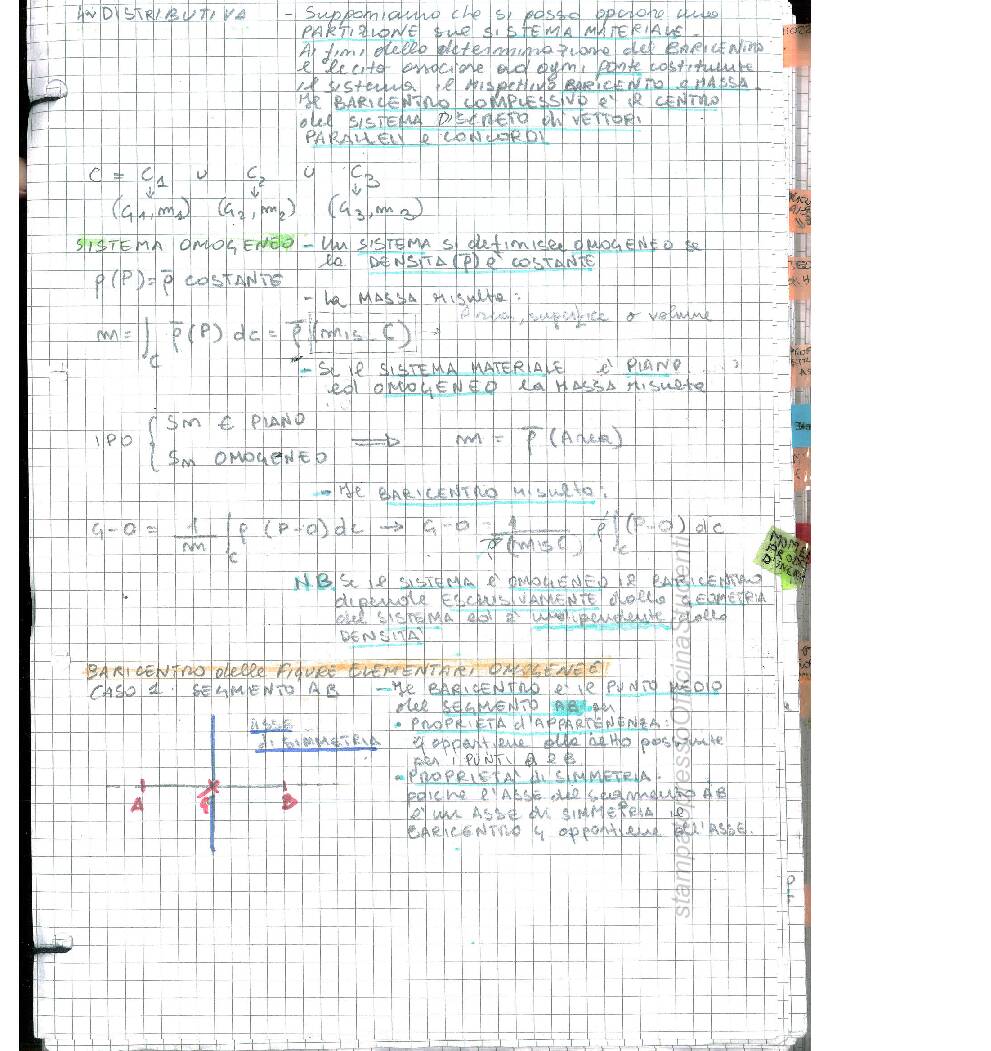 DISTRIBUTIVA - Supponiamo che si possa operare una
PARTIZIONE sul SISTEMA MATERIALE.
Ai fini della determinazione del BARICENTRO
è lecito associare ad ogni parte costituente
il sistema il rispettivo BARICENTRO e MASSA
Il BARICENTRO COMPLESSIVO è il CENTRO
del SISTEMA DISCRETO di VETTORI
PARALLELI e CONCORDI
C = C1 ∪ C2 ∪ C3
↓ ↓ ↓
(G1,m1) (G2,m2) (G3,m3)
SISTEMA OMOGENEO - Un SISTEMA si definisce OMOGENEO se
la DENSITA (ρ̄) è COSTANTE
ρ(P) = ρ̄ COSTANTE
- La MASSA risulta:
Area, superfice o volume
m = ∫C ρ̄(P) dc = ρ̄ (mis C) →
- Se il SISTEMA MATERIALE è PIANO
ed OMOGENEO la MASSA risulta
IPO { Sm ∈ PIANO
Sm OMOGENEO
⟹ m = ρ̄ (Area)
- Il BARICENTRO risulta:
G-O = 1/m ∫C ρ (P-O) dc → G-O = 1/ρ̄(mis C) ρ̄ ∫C (P-O) dc
N.B. Se il SISTEMA è OMOGENEO il BARICENTRO
dipende ESCLUSIVAMENTE dalla GEOMETRIA
del SISTEMA ed è indipendente dalla
DENSITÀ
BARICENTRO delle FIGURE ELEMENTARI OMOGENEE
CASO 1. SEGMENTO AB - Il BARICENTRO è il PUNTO MEDIO
del SEGMENTO AB
ASSE
di SIMMETRIA
• PROPRIETÀ d'APPARTENENZA:
G appartiene alla retta passante
per i PUNTI A e B
• PROPRIETÀ di SIMMETRIA.
poiche l'ASSE del segmento AB
è un ASSE di SIMMETRIA il
BARICENTRO G appartiene all'ASSE.
A G B
stampato presso Officina Studenti